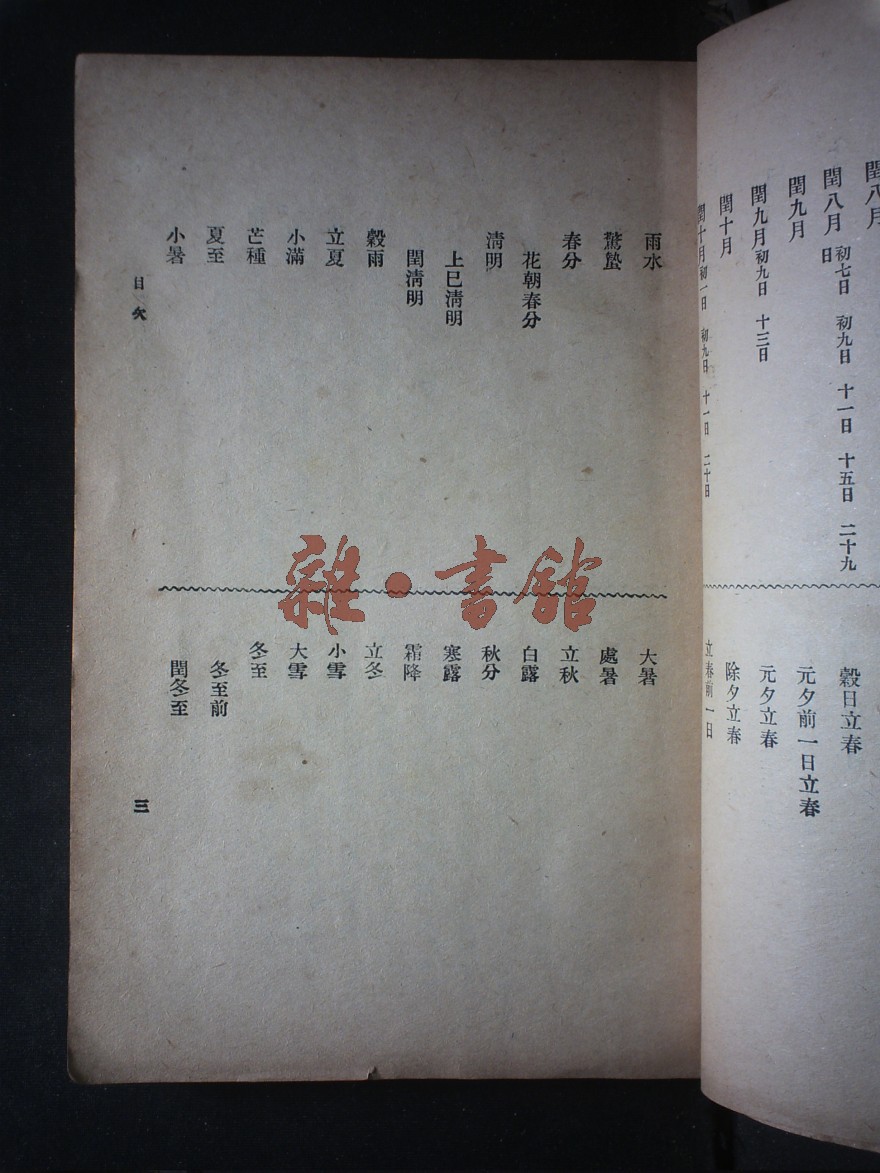 閏八月
閏八月 初七日 初九日 十一日 十五日 二十九日
閏九月
閏九月 初九日 十三日
閏十月
閏十月 初一日 初九日 十一日 二十日
穀日立春
元夕前一日立春
元夕立春
除夕立春
立春前一日
雨水
驚蟄
春分
花朝春分
清明
上巳清明
閏清明
穀雨
立夏
小滿
芒種
夏至
小暑
大暑
處暑
立秋
白露
秋分
寒露
霜降
立冬
小雪
大雪
冬至
冬至前
閏冬至
目次
三
雜·書館